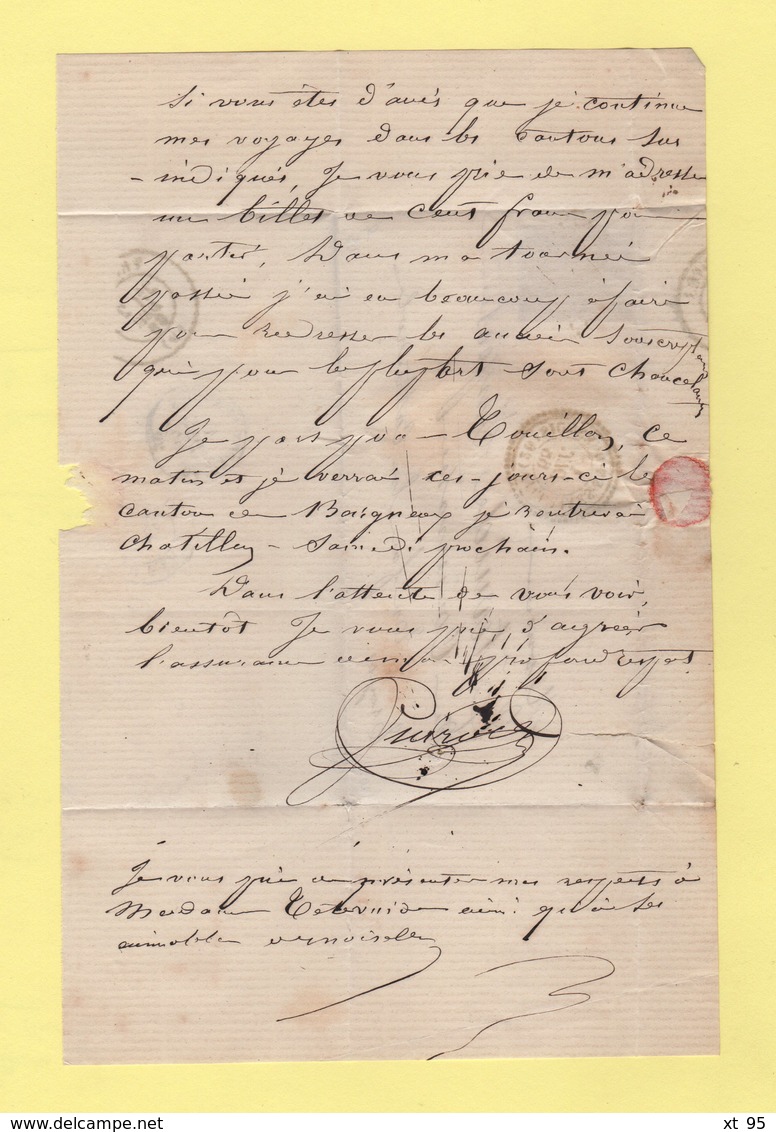 Si vous êtes d'avis que je continue
mes voyages dans les cantons sus
-indiqués, Je vous prie de m'adresser
un billet de cent francs pour
partir, Dans ma tournée
passée j'ai eu beaucoup à faire
pour redresser les anciens souscriptans
qui pour la plupart sont chancelants
Je pars pour Touillon, ce
matin et je verrai ces-jours-ci le
canton de Baigneux je rentrerai
Chatillon Samedi prochain.
Dans l'attente de vous voir,
bientôt Je vous prie, d'agréer
l'assurance de mon profond respect
Je vous prie de présenter mes respects à
Madame ainsi qu'à ses
aimables demoiselles
www.delcampe.net
xt 95